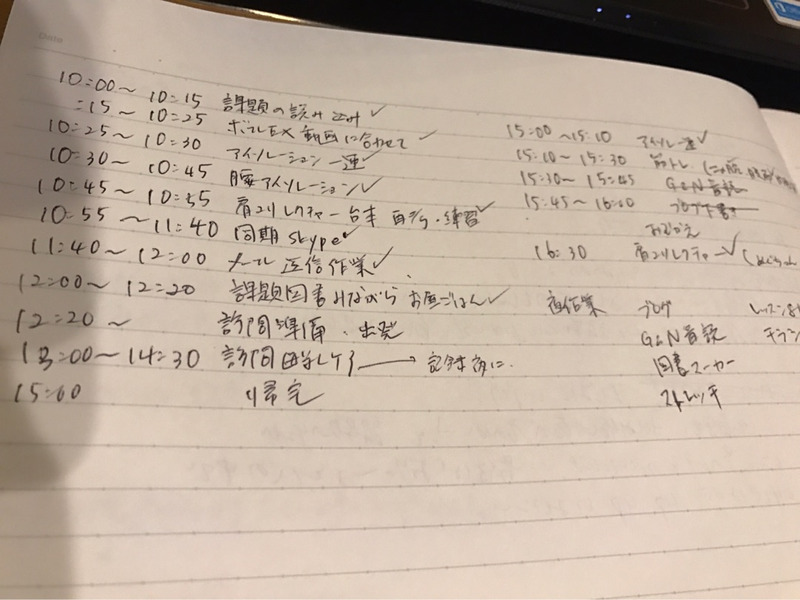 Date
10:00〜10:15 課題の読み込み✓
:15〜10:25 ボールEX動画に合わせて✓
10:25〜10:30 アイソレーション一連✓
10:30〜10:45 腰アイソレーション✓
10:45〜10:55 肩コリレクチャー台本 自分・練習✓
10:55〜11:40 同期skype✓
11:40〜12:00 メール返信作業✓
12:00〜12:20 課題図書みながらお昼ごはん✓
12:20〜 訪問準備・出発
13:00〜14:30 訪問
15:00 帰宅
15:00〜15:10 アイソレ一連✓
15:10〜15:30 筋トレ
15:30〜15:45 G&N音読
15:45〜16:00 ブログ下書き
おきがえ
16:30 肩コリレクチャー✓
夜作業 ブログ
G&N音読
図書
ストレッチ